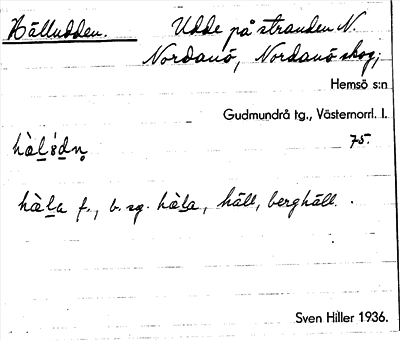 Hälludden. Udde på stranden N.
Nordanö, Nordanö skog;
Hemsö s:n
Gudmundrå tg., Västernorrl. l.
75.
hàla f., b. sg. hàla, häll, berghäll.
Sven Hiller 1936.